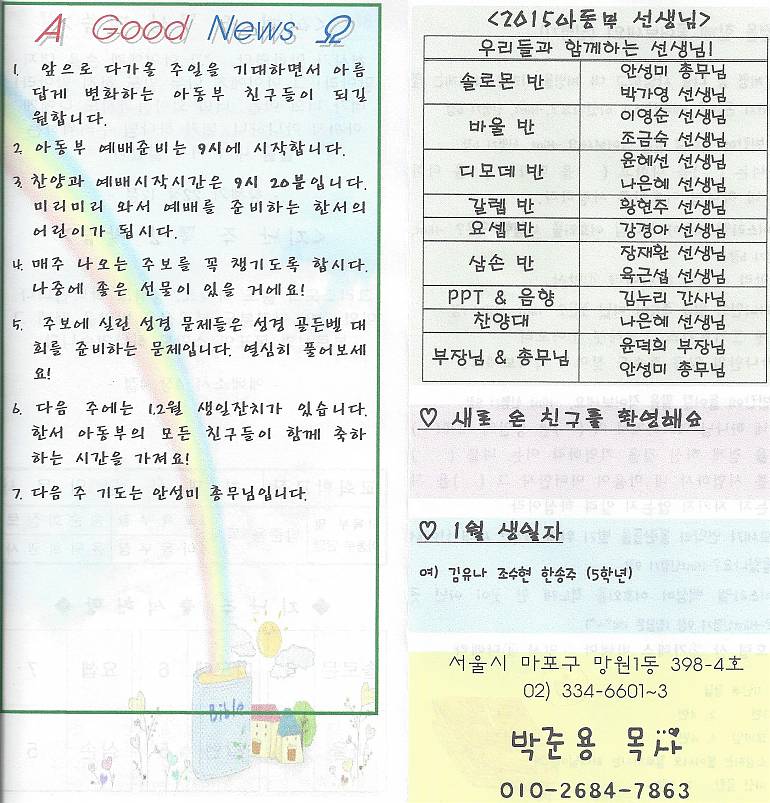 A Good News Ω
1. 앞으로 다가올 주일을 기대하면서 아름
답게 변화하는 아동부 친구들이 되길
원합니다.
2. 아동부 예배준비는 9시에 시작합니다.
3. 찬양과 예배시작시간은 9시 20분입니다.
미리미리 와서 예배를 준비하는 한서의
어린이가 됩시다.
4. 매주 나오는 주보를 꼭 챙기도록 합시다.
나중에 좋은 선물이 있을 거에요!
5. 주보에 실린 성경 문제들은 성경 골든벨 대
회를 준비하는 문제입니다. 열심히 풀어보세
요!
6. 다음 주에는 1.2월 생일잔치가 있습니다.
한서 아동부의 모든 친구들이 함께 축하
하는 시간을 가져요!
7. 다음 주 기도는 안성미 총무님입니다.
Bible
<2015아동부 선생님>
우리들과 함께하는 선생님!
솔로몬 반 안성미 총무님
박가영 선생님
바울 반 이영순 선생님
조금숙 선생님
디모데 반 윤혜선 선생님
나은혜 선생님
갈렙 반 황현주 선생님
요셉 반 강경아 선생님
삼손 반 장재환 선생님
육근섭 선생님
PPT & 음향 김누리 간사님
찬양대 나은혜 선생님
부장님 & 총무님 윤덕희 부장님
안성미 총무님
♡ 새로 온 친구를 환영해요
♡ 1월 생일자
여) 김유나 조수현 한송주 (5학년)
서울시 마포구 망원1동 398-4호
02) 334-6601~3
박준용 목사
010-2684-7863